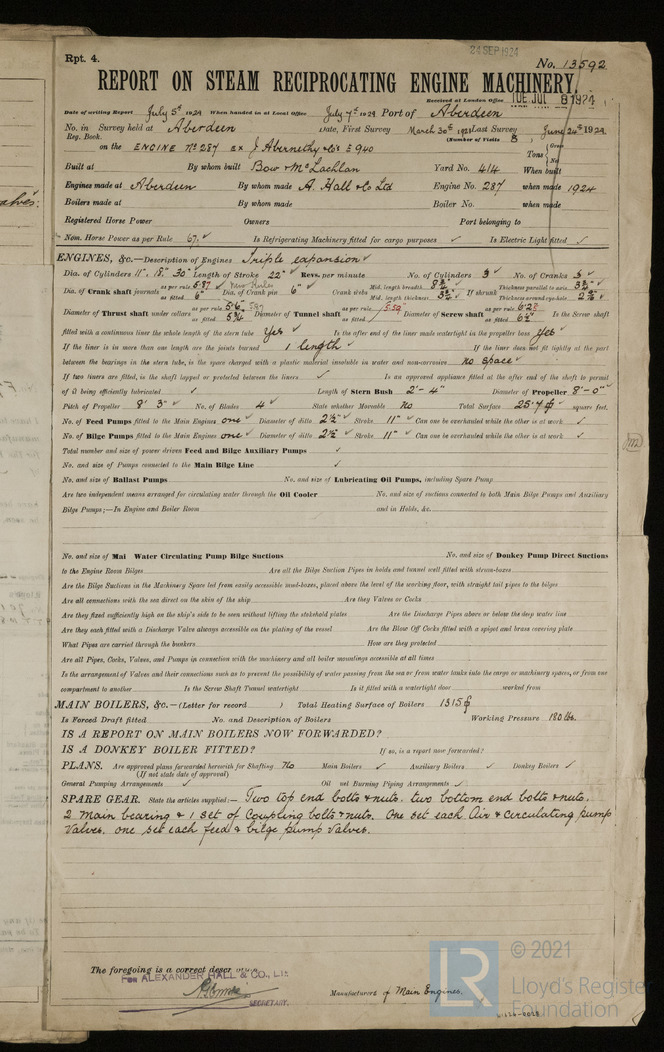 24 SEP 1924
Rpt. 4.
No. 13592
REPORT ON STEAM RECIPROCATING ENGINE MACHINERY.
Received at London Office TUE JUL 8 1924
Date of writing Report July 5th 1924 When handed in at Local Office July 7th 1924 Port of Aberdeen
No. in Survey held at Aberdeen Date, First Survey March 30th 1921 Last Survey June 24th 1924
Reg. Book. (Number of Visits
on the ENGINE No 287 ex J. Abernethy & Co's E 940 Tons { Gross
Built at By whom built Bow & McLachlan Yard No. 414 When built
Engines made at Aberdeen By whom made A. Hall & Co Ltd Engine No. 287 when made 1924
Boilers made at By whom made Boiler No. when made
Registered Horse Power Owners Port belonging to
Nom. Horse Power as per Rule 67. Is Refrigerating Machinery fitted for cargo purposes Is Electric Light fitted
ENGINES, &c.—Description of Engines Triple expansion
Dia. of Cylinders 11" 18" 30" Length of Stroke 22" Revs. per minute No. of Cylinders 3 No. of Cranks 3
Dia. of Crank shaft journals as per rule 5.87 as fitted 6" Dia. of Crank pin 6" Crank webs Mid. length breadth Mid. length thickness If shrunk Thickness parallel to axis Thickness around eye-hole
Diameter of Thrust shaft under collars as per rule as fitted Diameter of Tunnel shaft as per rule 5.59 as fitted Diameter of Screw shaft as per rule as fitted Is the Screw shaft
fitted with a continuous liner the whole length of the stern tube Yes Is the after end of the liner made watertight in the propeller boss Yes
If the liner is in more than one length are the joints burned 1 length If the liner does not fit tightly at the part
between the bearings in the stern tube, is the space charged with a plastic material insoluble in water and non-corrosive no space
If two liners are fitted, is the shaft lapped or protected between the liners Is an approved appliance fitted at the after end of the shaft to permit
of it being efficiently lubricated Length of Stern Bush 2'- 4" Diameter of Propeller 8'- 0"
Pitch of Propeller 8' 3" No. of Blades 4 State whether Moveable No Total Surface 25.7 square feet.
No. of Feed Pumps fitted to the Main Engines one Diameter of ditto 2½" Stroke 11" Can one be overhauled while the other is at work
No. of Bilge Pumps fitted to the Main Engines one Diameter of ditto 2½" Stroke 11" Can one be overhauled while the other is at work
Total number and size of power driven Feed and Bilge Auxiliary Pumps
No. and size of Pumps connected to the Main Bilge Line
No. and size of Ballast Pumps No. and size of Lubricating Oil Pumps, including Spare Pump
Are two independent means arranged for circulating water through the Oil Cooler No. and size of suctions connected to both Main Bilge Pumps and Auxiliary
Bilge Pumps;—In Engine and Boiler Room and in Holds, &c.
No. and size of Mai Water Circulating Pump Bilge Suctions No. and size of Donkey Pump Direct Suctions
to the Engine Room Bilges Are all the Bilge Suction Pipes in holds and tunnel well fitted with strum-boxes
Are the Bilge Suctions in the Machinery Space led from easily accessible mud-boxes, placed above the level of the working floor, with straight tail pipes to the bilges
Are all connections with the sea direct on the skin of the ship Are they Valves or Cocks
Are they fixed sufficiently high on the ship's side to be seen without lifting the stokehold plates Are the Discharge Pipes above or below the deep water line
Are they each fitted with a Discharge Valve always accessible on the plating of the vessel Are the Blow Off Cocks fitted with a spigot and brass covering plate
What Pipes are carried through the bunkers How are they protected
Are all Pipes, Cocks, Valves, and Pumps in connection with the machinery and all boiler mountings accessible at all times
Is the arrangement of Valves and their connections such as to prevent the possibility of water passing from the sea or from water tanks into the cargo or machinery spaces, or from one
compartment to another Is the Screw Shaft Tunnel watertight Is it fitted with a watertight door worked from
MAIN BOILERS, &c.—(Letter for record ) Total Heating Surface of Boilers 1315
Is Forced Draft fitted No. and Description of Boilers Working Pressure 180 lbs.
IS A REPORT ON MAIN BOILERS NOW FORWARDED?
IS A DONKEY BOILER FITTED? If so, is a report now forwarded?
PLANS. Are approved plans forwarded herewith for Shafting No Main Boilers Auxiliary Boilers Donkey Boilers
(If not state date of approval)
General Pumping Arrangements Oil uel Burning Piping Arrangements
SPARE GEAR. State the articles supplied:— Two top end bolts & nuts. two bottom end bolts & nuts.
2 Main bearing & 1 set of Coupling bolts & nuts. One set each Air & circulating pump
Valves. one set each feed & bilge pump valves.
The foregoing is a correct descr
For ALEXANDER HALL & CO., Ltd
SECRETARY.
Manufacturers of Main Engines.
LR
© 2021
Lloyd's Register
Foundation